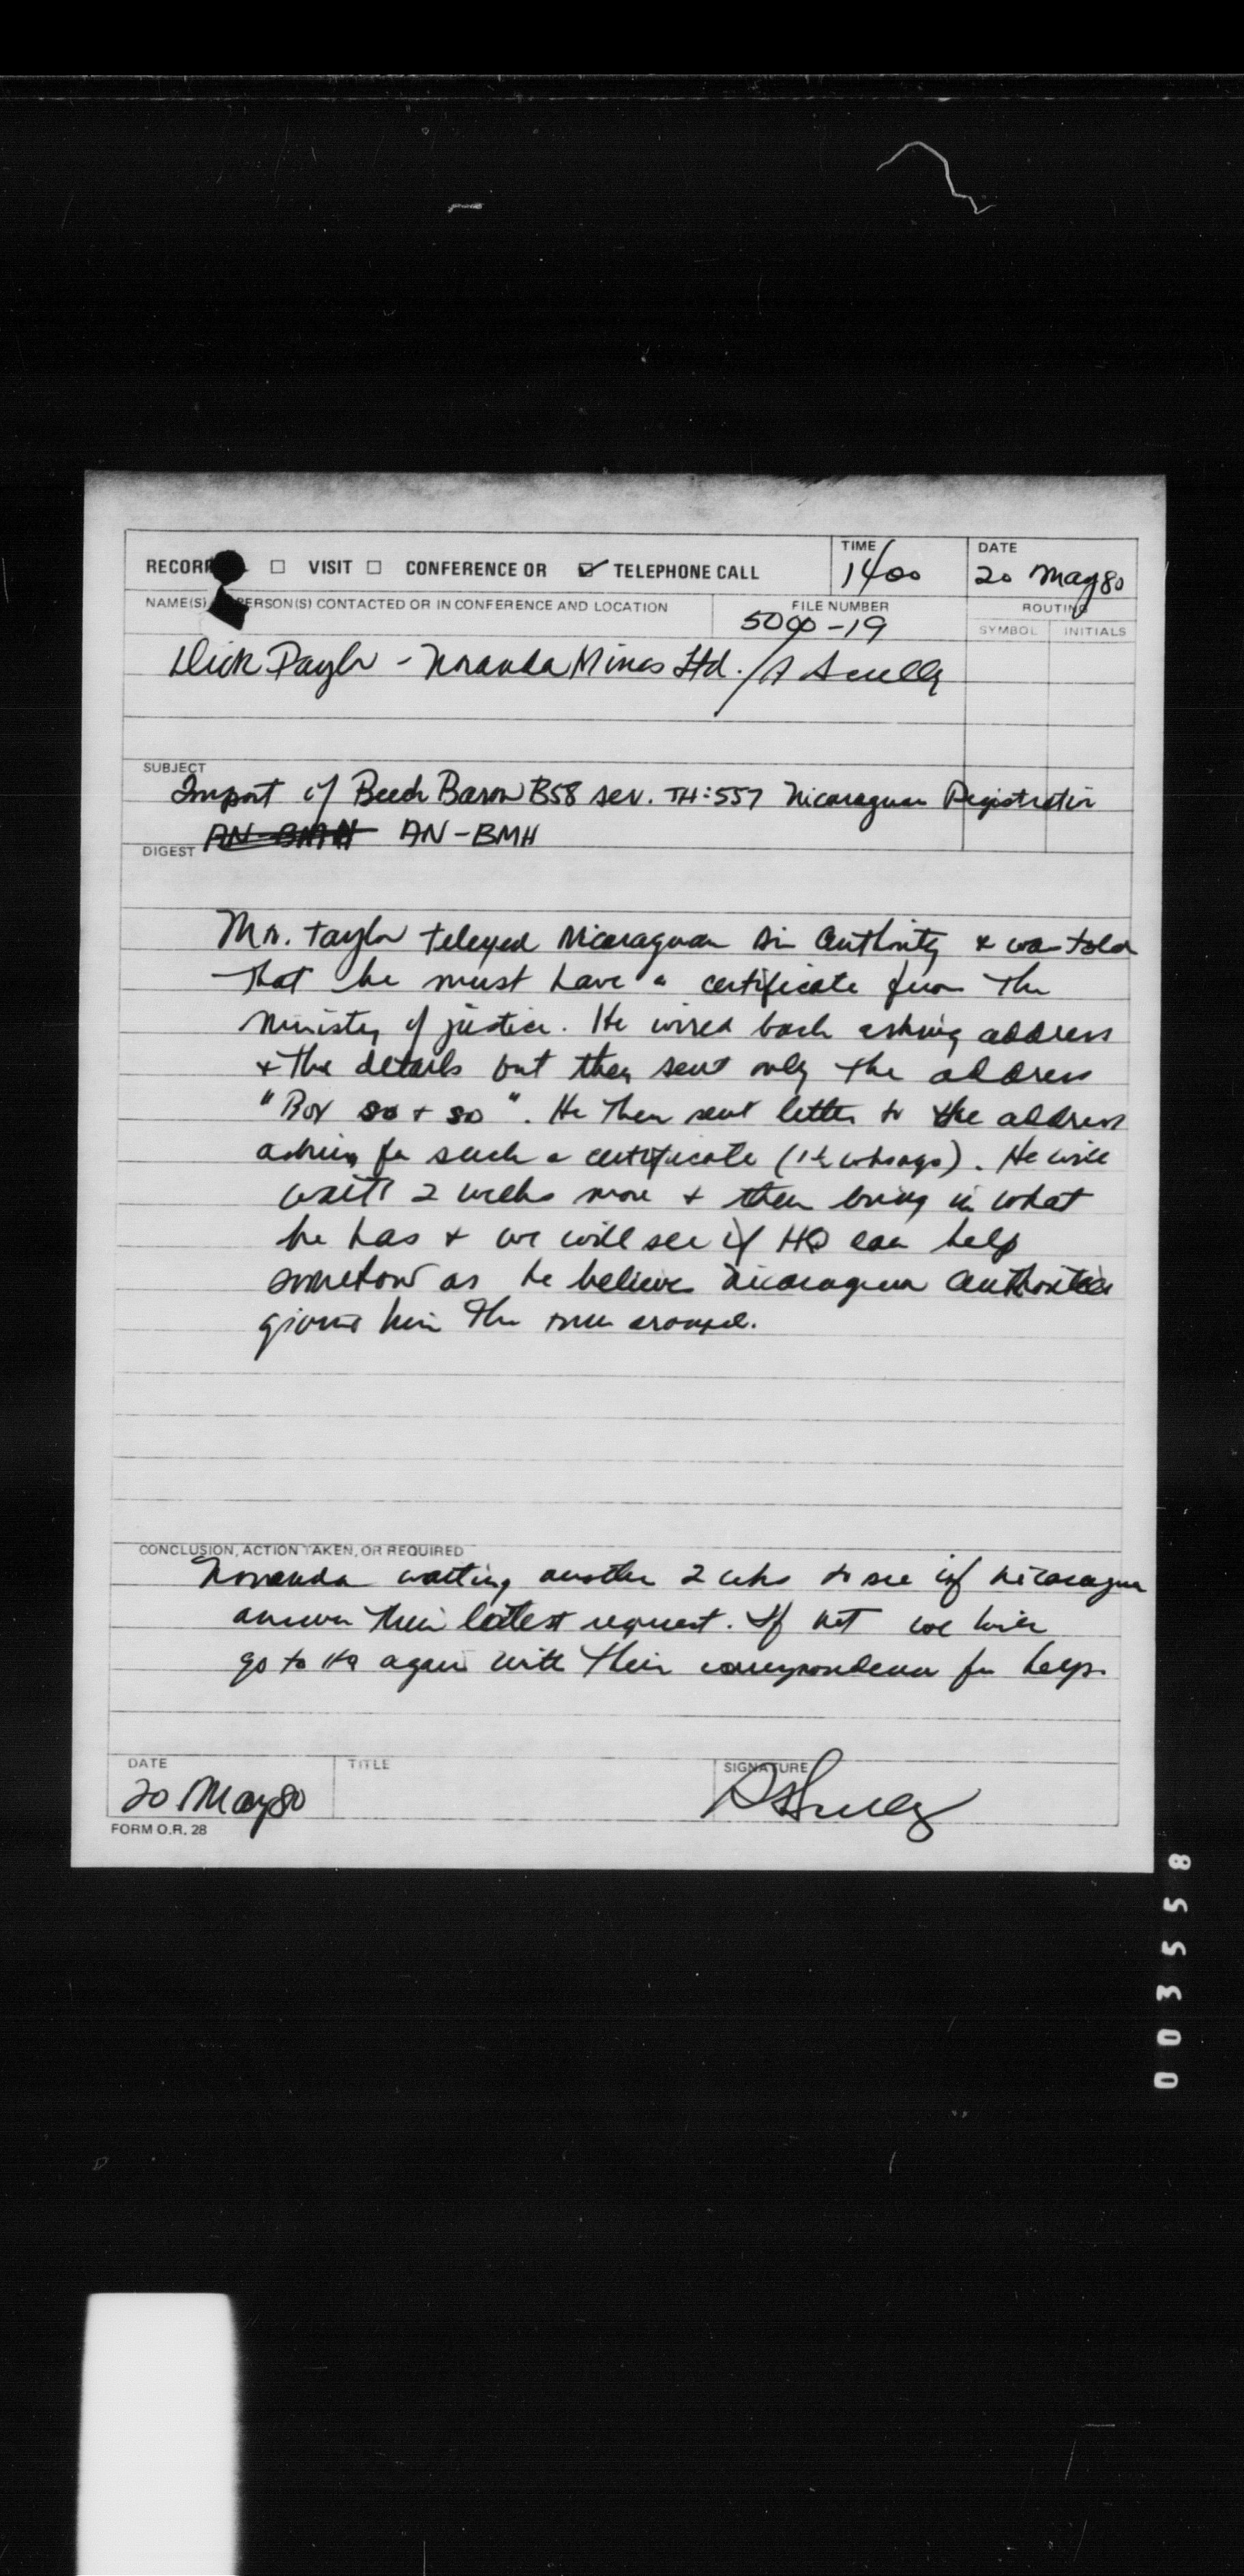 RECORD ☐ VISIT ☐ CONFERENCE OR ☑ TELEPHONE CALL
TIME
1400
DATE
20 May 80
NAME(S) PERSON(S) CONTACTED OR IN CONFERENCE AND LOCATION
FILE NUMBER
5000-19
ROUTING
SYMBOL INITIALS
Dick Taylor - Noranda Mines Ltd. / A Scully
SUBJECT
Import of Beech Baron B58 ser. TH:557 Nicaraguan Registration
AN-BMH
DIGEST
Mr. Taylor telexed Nicaraguan Air Authority & was told
that he must have a certificate from the
Ministry of justice. He wired back asking address
& the details but they sent only the address
"Box so & so". He then sent letter to the address
asking for such a certificate (1½ wks ago). He will
wait 2 weeks more & then bring in what
he has & we will see if HQ can help
somehow as he believes Nicaraguan authorities
giving him the run around.
CONCLUSION, ACTION TAKEN, OR REQUIRED
Noranda waiting another 2 wks to see if Nicaragua
answer their latest request. If not we will
go to HQ again with their correspondence for help.
DATE
20 May 80
TITLE
SIGNATURE
FORM O.R. 28
003558